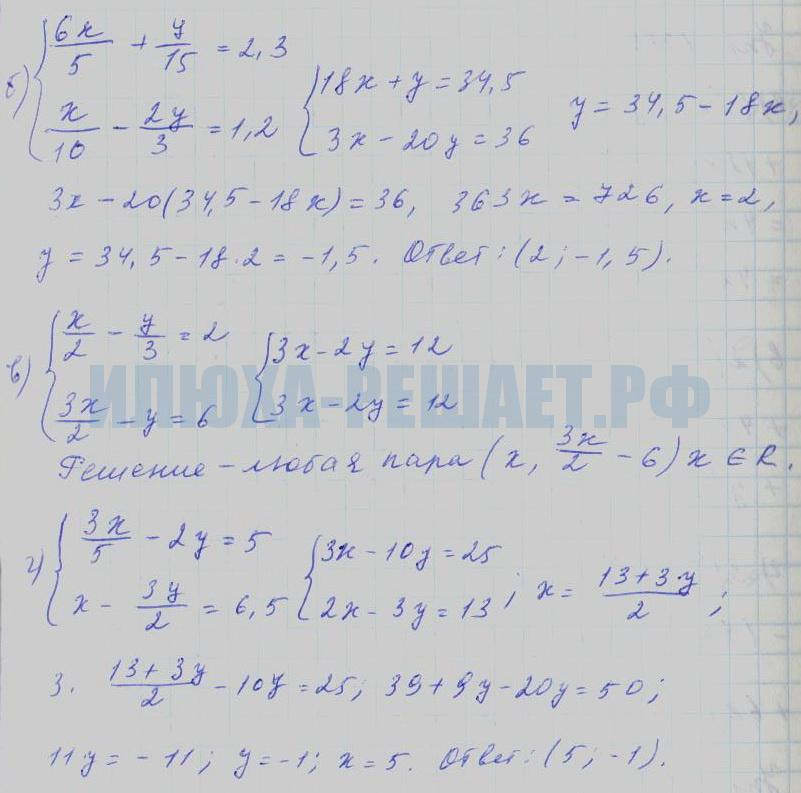 б) { 6x/5 + y/15 = 2,3
x/10 - 2y/3 = 1,2 { 18x + y = 34,5
3x - 20y = 36 y = 34,5 - 18x,
3x - 20(34,5 - 18x) = 36, 363x = 726, x = 2,
y = 34,5 - 18·2 = -1,5. Ответ: (2; -1,5).
в) { x/2 - y/3 = 2
3x/2 - y = 6 { 3x - 2y = 12
3x - 2y = 12
ИЛЮХА-РЕШАЕТ.РФ
Решение - любая пара (x, 3x/2 - 6) x ∈ R.
г) { 3x/5 - 2y = 5
x - 3y/2 = 6,5 { 3x - 10y = 25
2x - 3y = 13 ; x = 13 + 3·y/2 ;
3. 13 + 3y/2 - 10y = 25; 39 + 9y - 20y = 50;
11y = -11; y = -1; x = 5. Ответ: (5; -1).